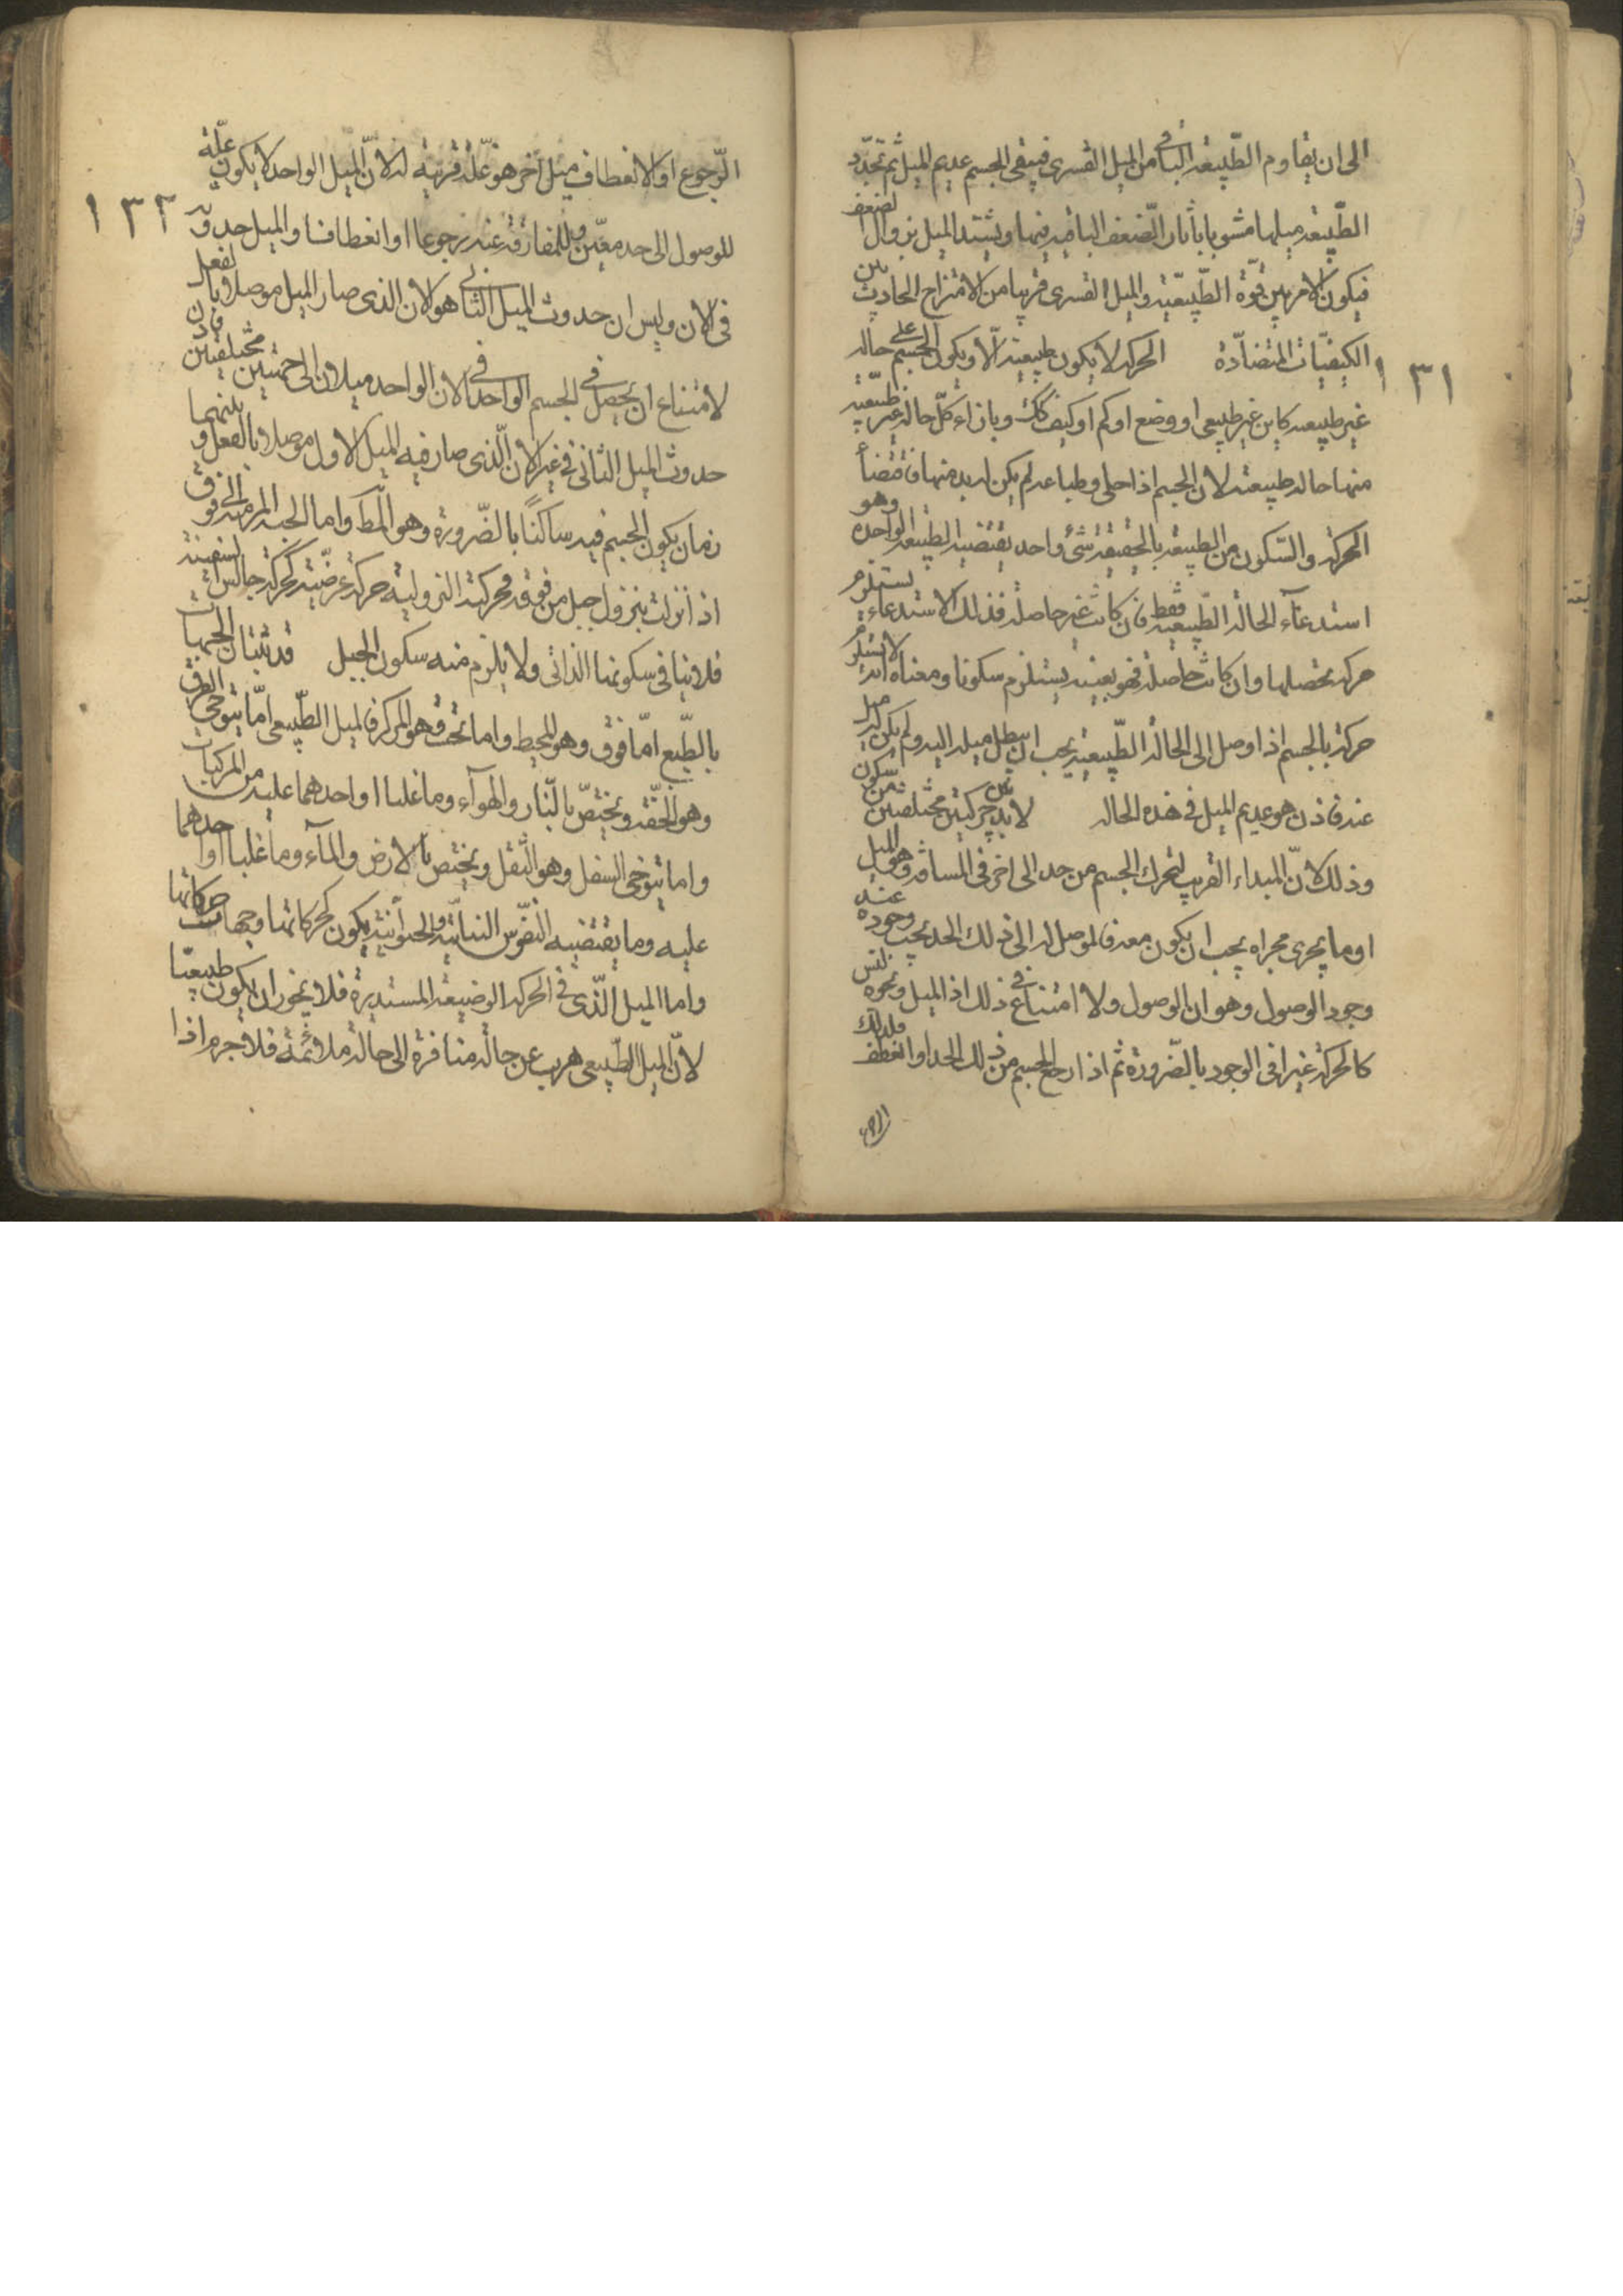 الى ان يقاوم الطّبيعة الباقى من الميل القسرى فيبقى الجسم عديم الميل ثم تجدّد
الطّبيعة ميلها مشوبا باثار الضّعف الباقية فيها ويشتد الميل بزوال الضعف
فيكون الامر بين قوّة الطّبيعيّة والميل القسرى قريبا من الامتزاج الحادث بين
الكيفيّات المتضادّة الحركة لا يكون طبيعية الّا ويكون الجسم على حالة
غير طبيعية كاين غير طبيعى او وضع او كم او كيف كك وبازاء كلّ حالة غير طبيعية
منها حالة طبيعية لان الجسم اذا خلى وطباعه لم يكن له بد منها فمقتضا
الحركة والسّكون من الطبيعة بالحقيقة شئ واحد يقتضيه الطّبيعة الواحدة وهو
استدعآء الحالة الطّبيعية فقط فان كانت غير حاصلة فذلك الاستدعاء يستلزم
حركة تحصلها وان كانت حاصلة فهو بعينه يستلزم سكونا ومعناه انه لا يستلزم
حركة بالجسم اذا وصل الى الحالة الطّبيعية يجب ان يبطل ميله اليه ولم يكن له ميل
عنه فاذن هو عديم الميل فى هذه الحالة لا بد بين حركتين مختلفتين من سكون
وذلك لانّ المبداء القريب لتحرك الجسم من حد الى اخر فى المسافة وهو الميل
او ما يجرى مجراه يجب ان يكون معه فالموصل له الى ذلك الحد يجب وجوده عند
وجود الوصول وهو ان الوصول ولا امتناع فى ذلك اذ الميل ونحوه ليس
كالحركة غير انى الوجود بالضّرورة ثم اذا رجع الجسم من ذلك الحد او انعطف فلذلك
الر
١٣١
الرّجوع او الانعطاف ميل آخر هو علّة قريبة له لانّ الميل الواحد لا يكون علّة
للوصول الى حد معيّن وللمفارقة عنه رجوعا او انعطافا والميل حدوثه
فى الان وليس ان حدوث الميل الثانى هو الان الذى صار الميل موصلا بالفعل
لامتناع ان يحصل فى الجسم الواحد فى الان الواحد ميلان الى جهتين مختلفتين فاذن
حدوث الميل الثانى فى غير الان الّذى صار فيه الميل الاول موصلا بالفعل وبينهما
زمان يكون الجسم فيه ساكنًا بالضّرورة وهو المط واما الحبة المرمية الى فوق
اذا نزلت بنزول جبل من فوقه فحركته النزولية حركة عرضيّة كحركة جالس السفينة
فلا ينافى سكونها الذاتى ولا يلزم منه سكون الجبل قد تبين ان الجهات
بالطّبع امّا فوق وهو المحيط واما تحت وهو المركز فالميل الطّبيعى امّا يتوخى الفوق
وهو الخفّة ويختصّ بالنّار والهوآء وما غلبا او احدهما عليه من المركبات
واما يتوخى السفل وهو الثقل ويختص بالارض والمآء وما غلبا او احدهما
عليه وما يقتضيه النفوس النباتيّة والحيوانية يكون كحركاتها وجهات حركاتها
واما الميل الّذى فى الحركة الوضيعة المستديرة فلا يجوز ان يكون طبيعيّا
لانّ الميل الطّبيعى هرب عن حالة منافرة الى حالة ملائمة فلا جرم اذا
١٣٢